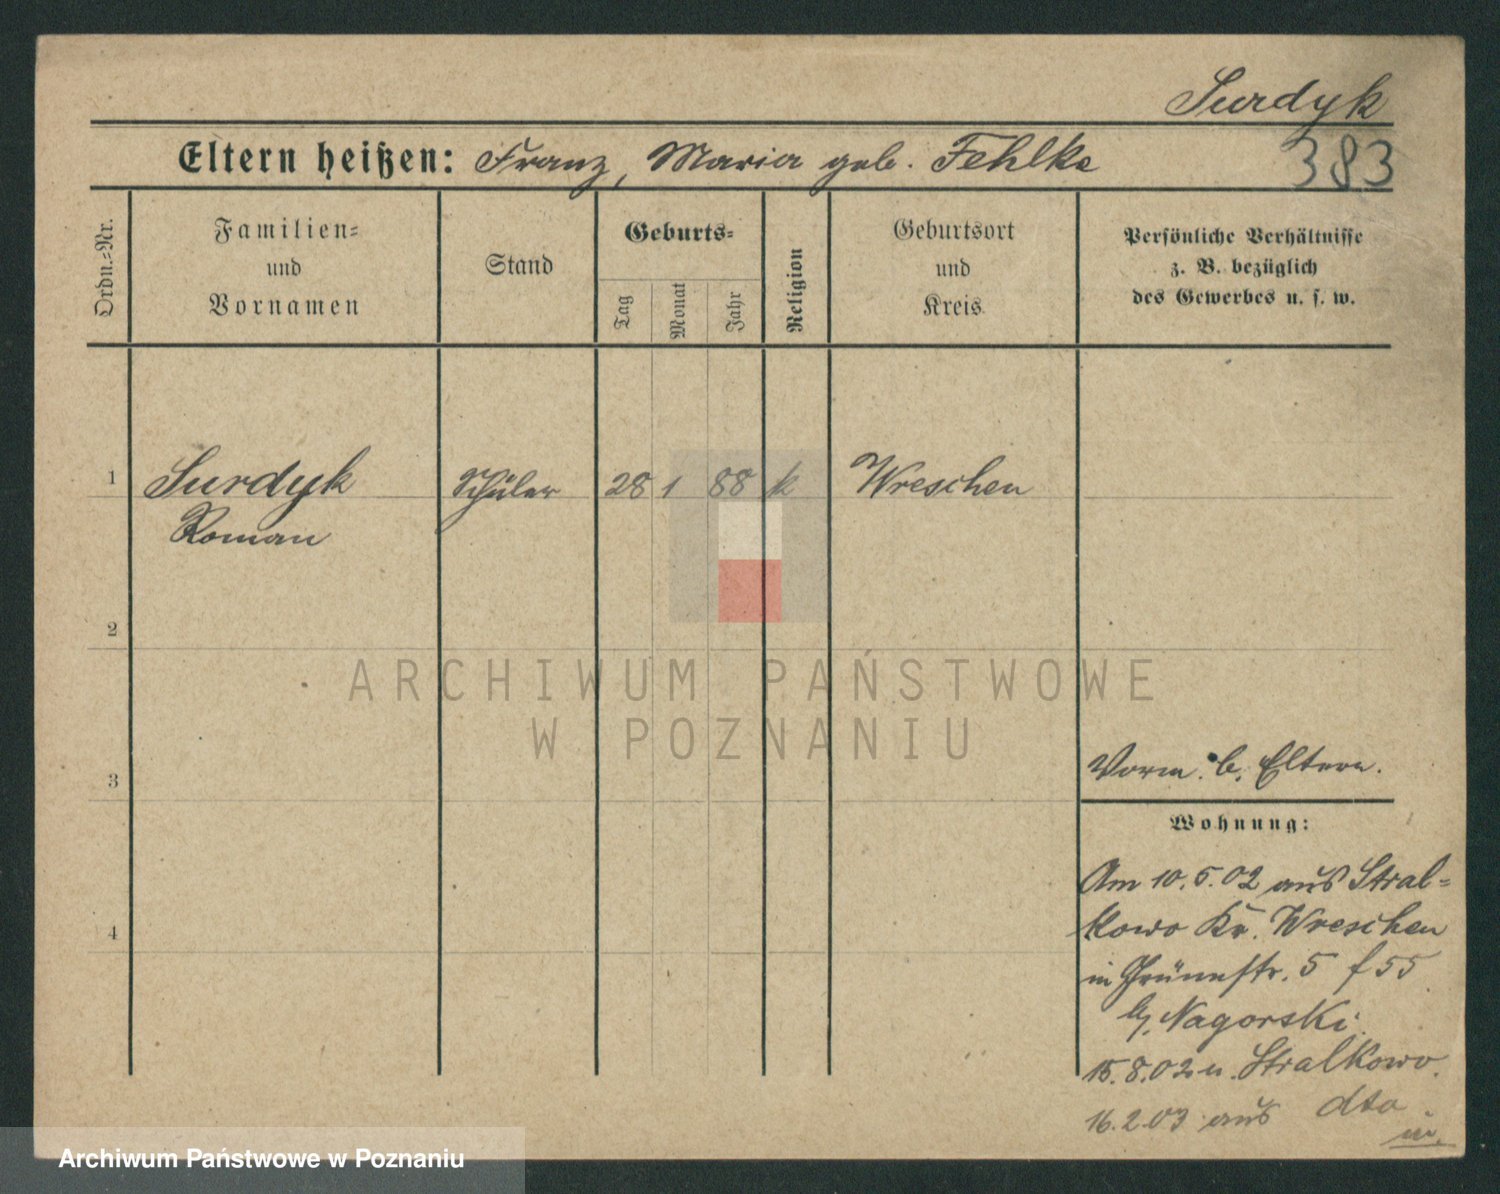 Surdyk
Eltern heißen: Franz, Maria geb. Fehlke
383
Ordn.-Nr.
Familien-
und
Vornamen
Stand
Geburts-
Tag
Monat
Jahr
Religion
Geburtsort
und
Kreis
Persönliche Verhältnisse
z. B. bezüglich
des Gewerbes u. s. w.
1 Surdyk Schüler 28 1 88 k Wreschen
Roman
2
ARCHIWUM PAŃSTWOWE
W POZNANIU
3
Vorm. b. Eltern.
Wohnung:
Am 10.5.02 aus Stral=
kowo Kr. Wreschen
in Grünestr. 5 f 55
b/ Nagorski
15.8.02 n. Stralkowo.
16.2.03 aus dto
in.
4
Archiwum Państwowe w Poznaniu